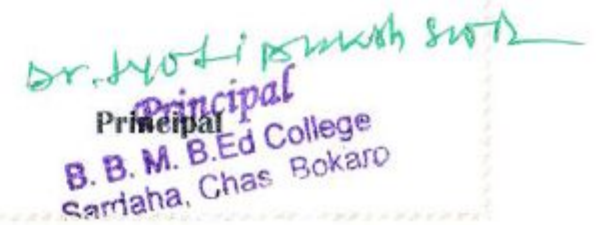 Dr. Jyoti
Principal
Principal
B. B. M. B.Ed College
Sardaha, Chas Bokaro